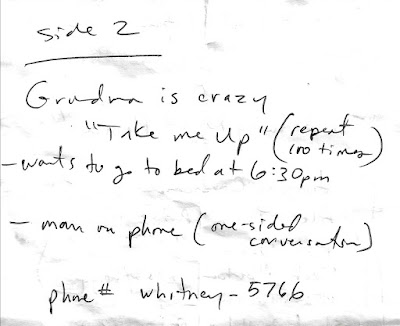 side 2
Grandma is crazy
"Take me up" (repeat 100 times)
- wants to go to bed at 6:30pm
- man on phone (one-sided conversation)
phone # whitney - 5766